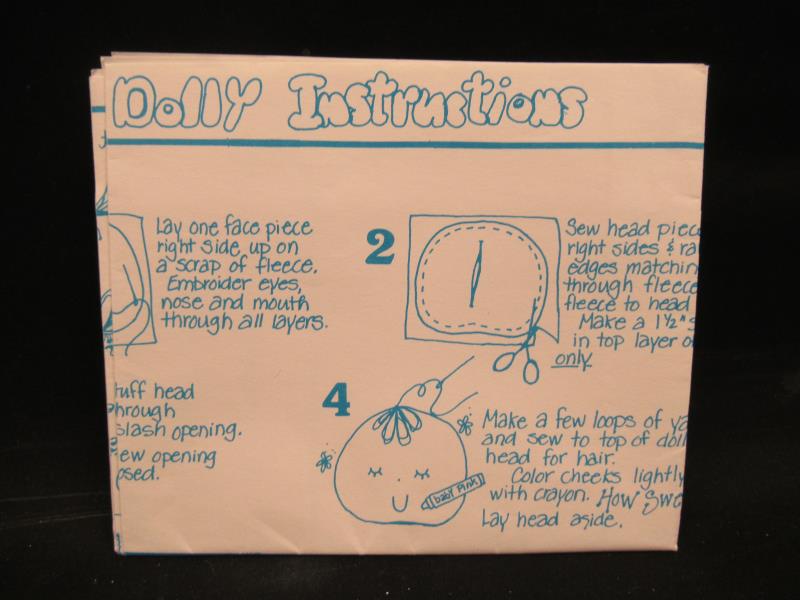 Dolly Instructions
Lay one face piece
right side up on
a scrap of fleece.
Embroider eyes,
nose and mouth
through all layers.
2
Sew head piec
right sides & ra
edges matchin
through fleece
fleece to head
Make a 1½" s
in top layer o
only.
tuff head
hrough
slash opening.
ew opening
osed.
4
baby pink
Make a few loops of ya
and sew to top of doll
head for hair.
Color cheeks lightly
with crayon. How Swe
Lay head aside.